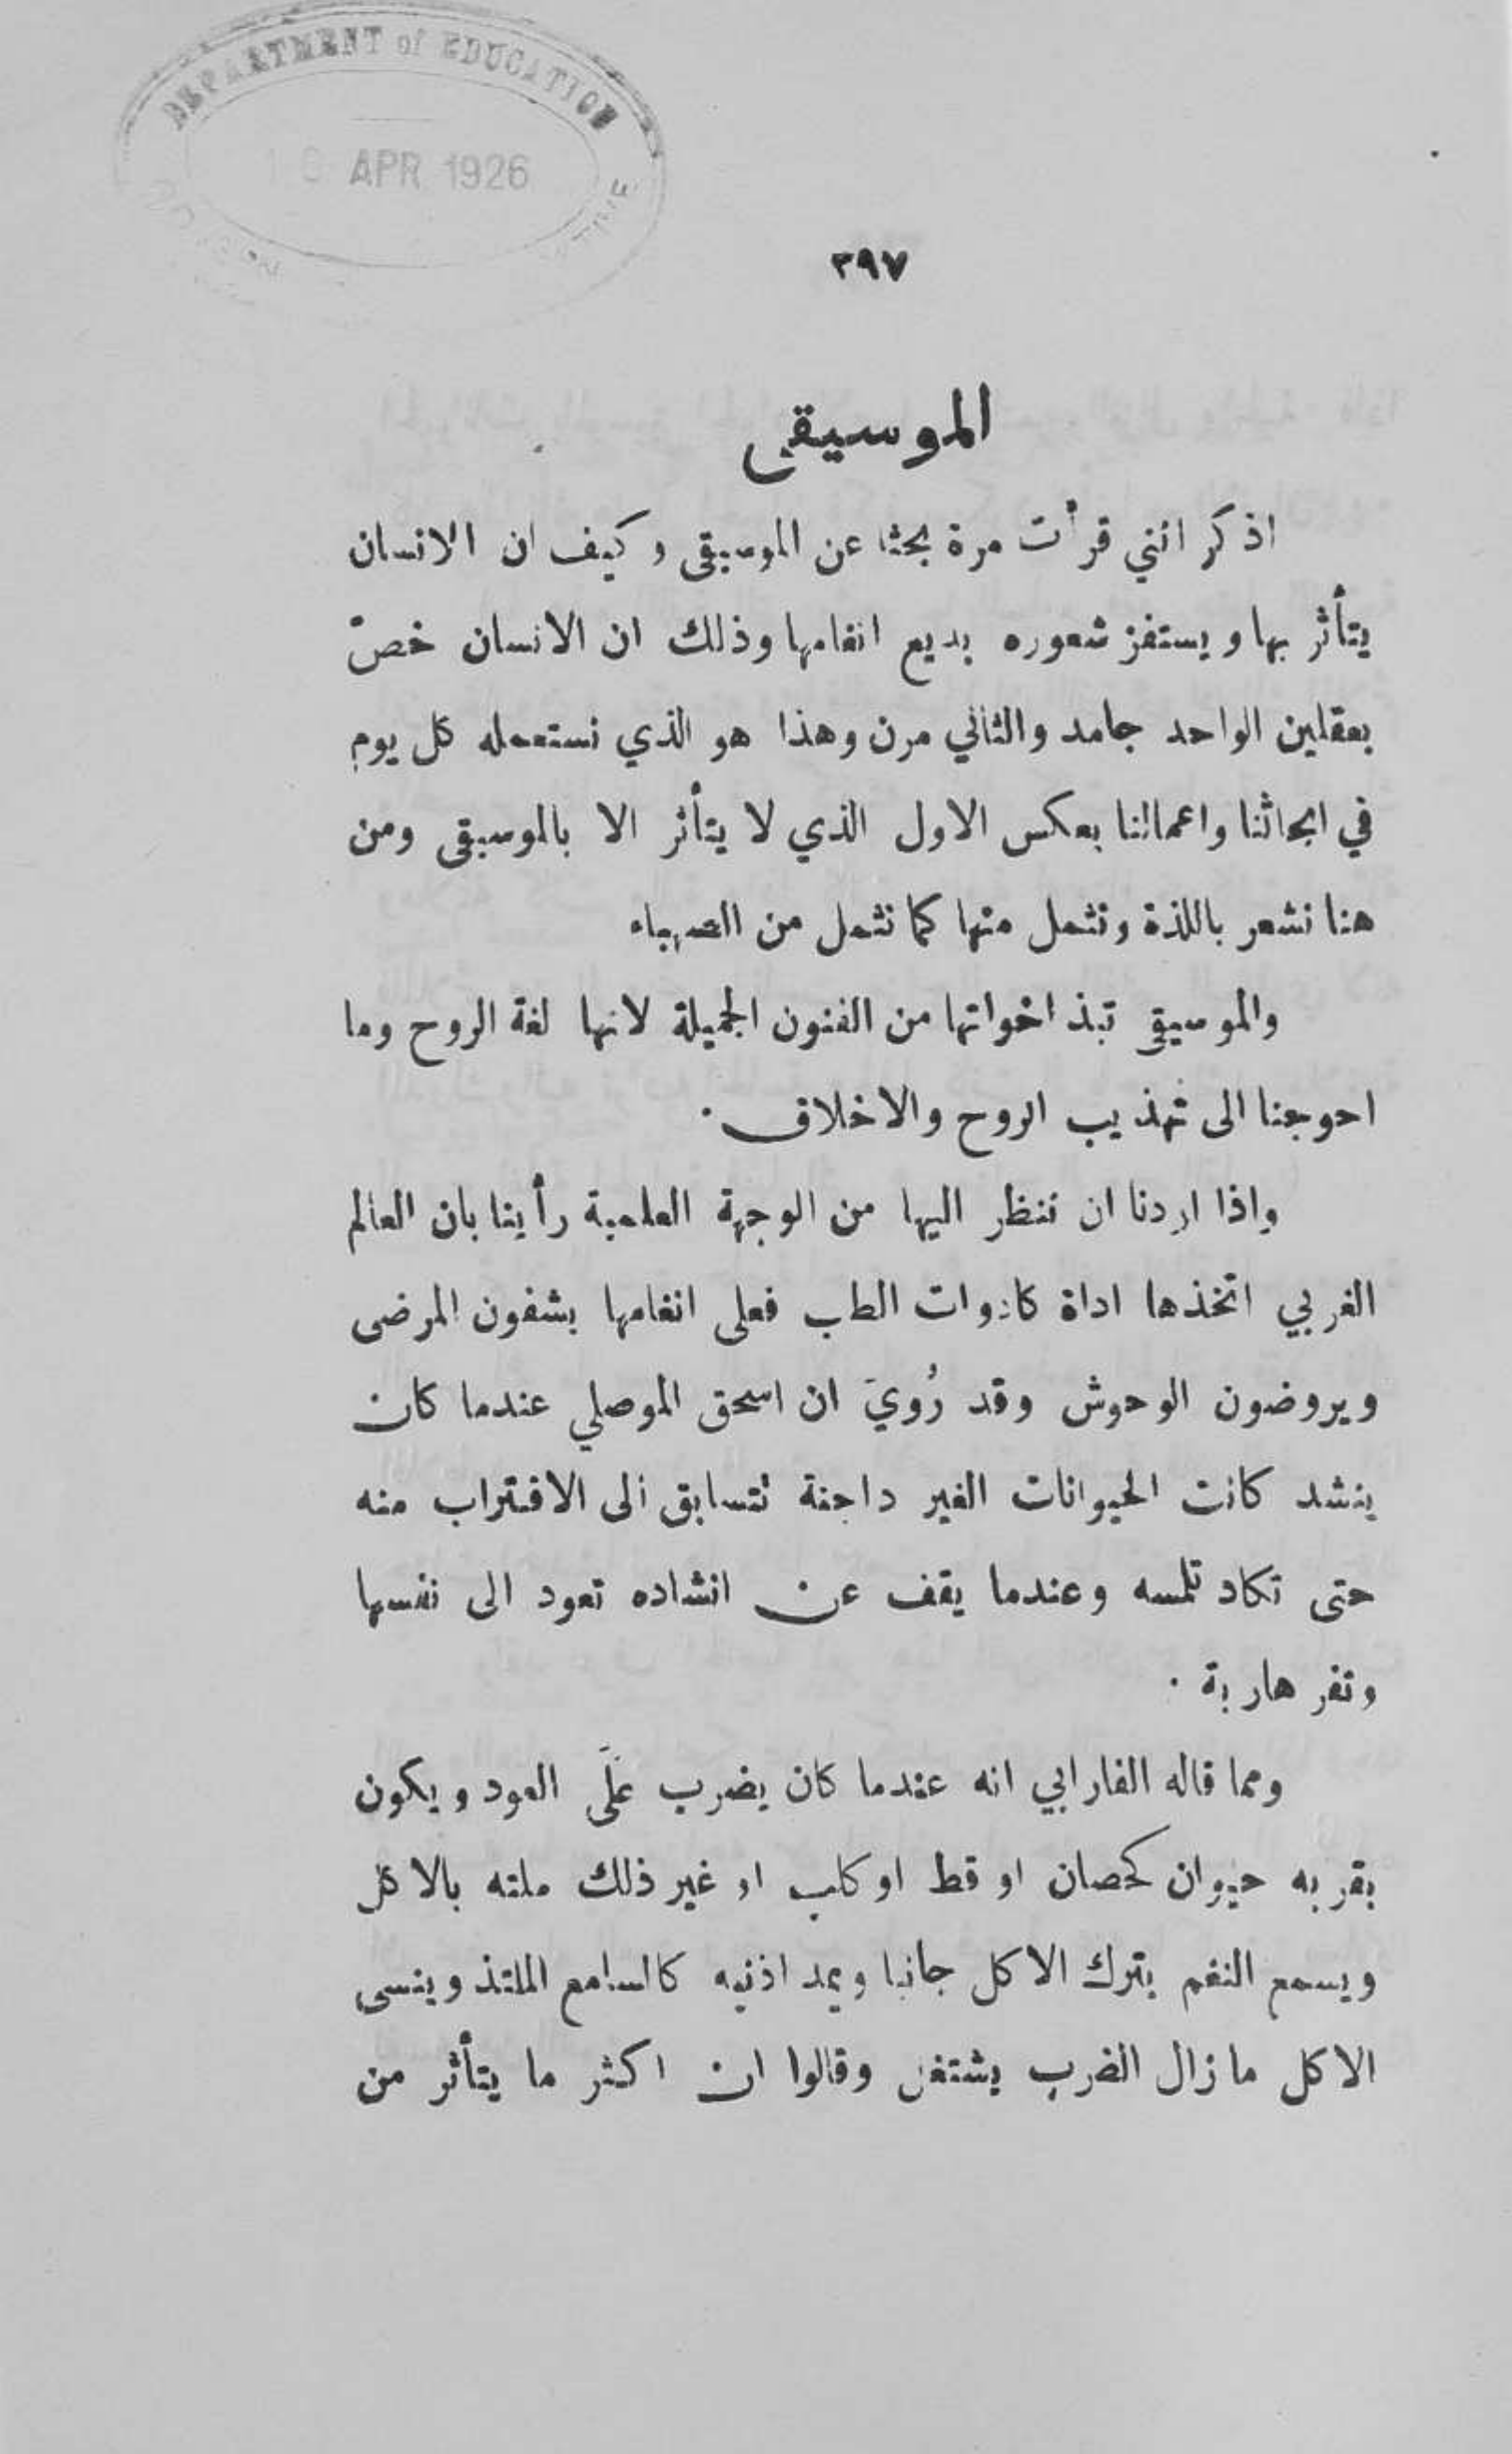 DEPARTMENT of EDUCATION
APR 1926
٣٩٧
الموسيقى
اذكر انني قرأت مرة بحثا عن الموسيقى وكيف ان الانسان
يتأثر بها ويستفز شعوره بديع انغامها وذلك ان الانسان خصّ
بعقلين الواحد جامد والثاني مرن وهذا هو الذي نستعمله كل يوم
في ابحاثنا واعمالنا بعكس الاول الذي لا يتأثر الا بالموسيقى ومن
هنا نشعر باللذة ونثمل منها كما نثمل من الصهباء
والموسيقى تبذ اخواتها من الفنون الجميلة لانها لغة الروح وما
احوجنا الى تهذيب الروح والاخلاق .
واذا اردنا ان ننظر اليها من الوجهة العلمية رأينا بان العالم
الغربي اتخذها اداة كادوات الطب فعلى انغامها يشفون المرضى
ويروضون الوحوش وقد رُويَ ان اسحق الموصلي عندما كان
ينشد كانت الحيوانات الغير داجنة تتسابق الى الاقتراب منه
حتى تكاد تلمسه وعندما يقف عن انشاده تعود الى نفسها
وتفر هاربة .
ومما قاله الفارابي انه عندما كان يضرب عَلَى العود ويكون
بقربه حيوان كحصان او قط او كلب او غير ذلك ملته بالاكل
ويسمع النغم يترك الاكل جانبا ويمد اذنيه كالسامع الملتذ وينسى
الاكل ما زال الضرب يشتغل وقالوا ان اكثر ما يتأثر من